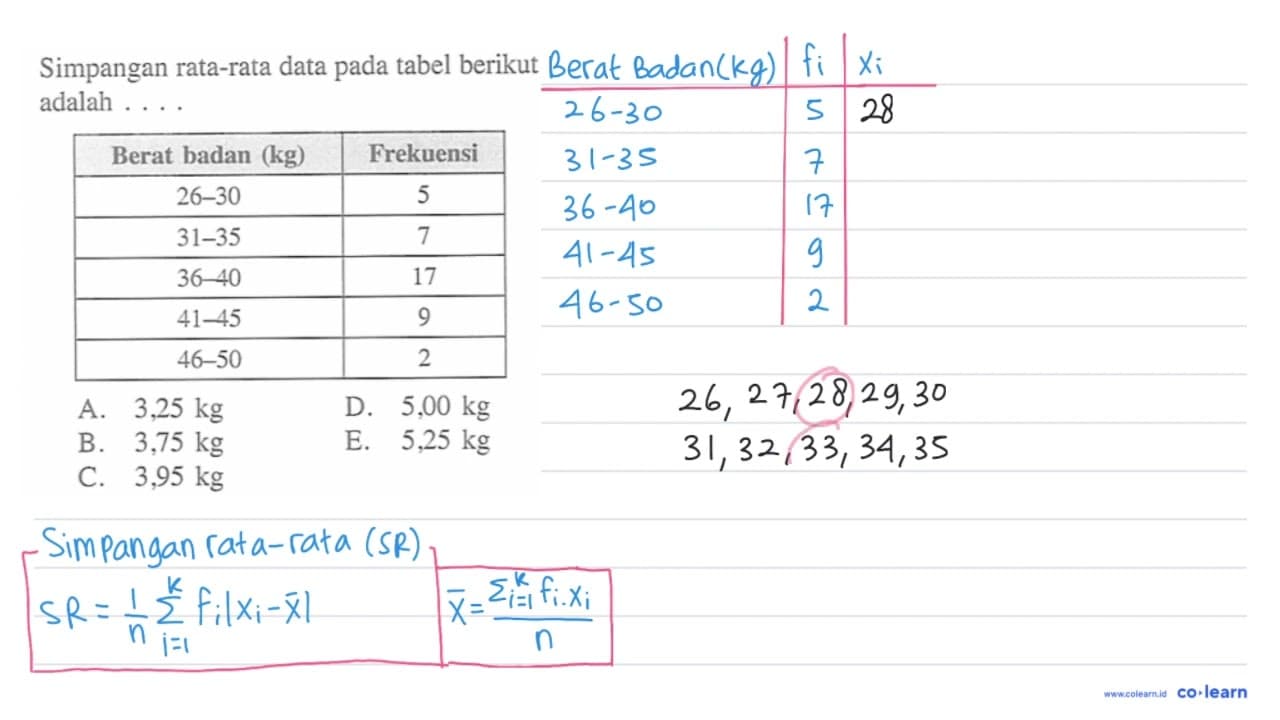 Simpangan rata-rata data pada tabel berikut
adalah . . . .
Berat badan (kg) Frekuensi
26–30 5
31–35 7
36–40 17
41–45 9
46–50 2
A. 3,25 kg D. 5,00 kg
B. 3,75 kg E. 5,25 kg
C. 3,95 kg
Berat Badan(kg) fi xi
26-30 5 28
31-35 7
36-40 17
41-45 9
46-50 2
26, 27, 28, 29, 30
31, 32, 33, 34, 35
Simpangan rata-rata (SR)
SR = 1/n Σ_{i=1}^{k} fi|xi - x̄|
x̄ = Σ_{i=1}^{k} fi.xi / n
www.colearn.id co·learn